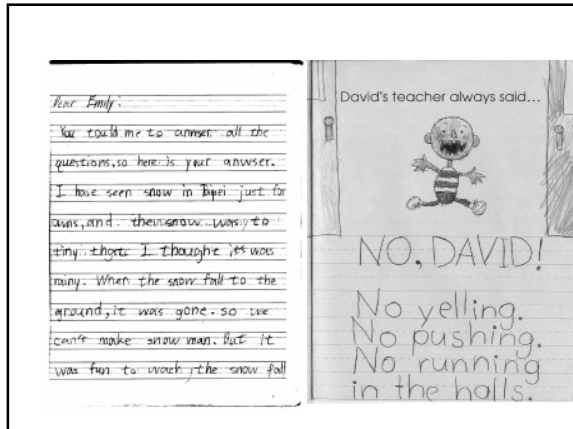 Dear Emily:
You tould me to annser all the
questions, so here is your anwser.
I have seen snow in Taipei just for
and the snow was to
tiny I thought it's was
rainy. When the snow fall to the
ground, it was gone. so we
can't make snow man. But it
was fun to wach, the snow fall
David's teacher always said...
NO, DAVID!
No yelling.
No pushing.
No running
in the halls.